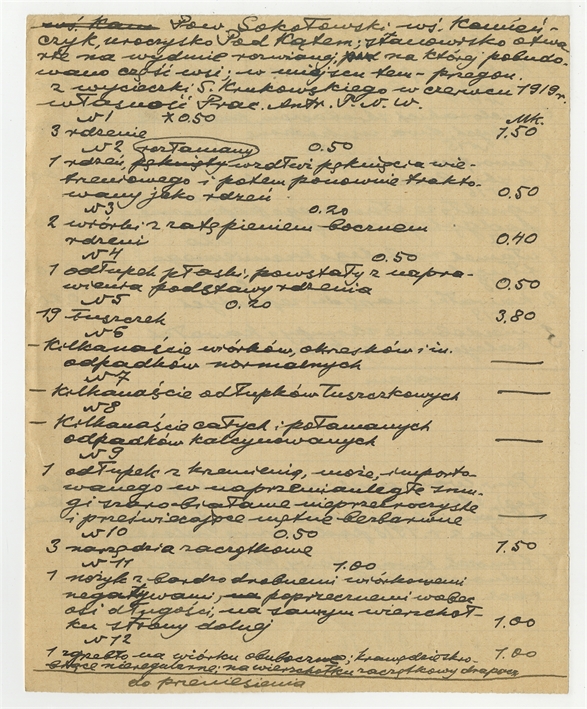 wś. Kam Pow. Sokołowski, wś. Kamień-
czyk, uroczysko Pod Kątem; stanowisko otwa-
rte na wydmie rozwianej, na której pobudo-
wano część wsi; w miejscu ten- przegon.
Z wycieczki S. Krukowskiego w czerwcu 1919 r.
własność Prac. Antr. T. N. W.
N 1 x 0.50 MK.
3 rdzenie 1.50
N 2 rozłamany 0.50
1 rdzeń, pęknięty wzdłuż pęknięcia wie-
trzeniowego i potem ponownie trakto-
wany jako rdzeń 0.50
N 3 0.20
2 wiórki z zatępieniem bocznem
rdzeni 0.40
N 4 0.50
1 odłupek płaski, powstały z napra-
wienia podstawy rdzenia 0.50
N 5 0.20
19 łuszczek 3.80
N 6
– Kilkanaście wiórków, okresków i in.
odpadków normalnych —
N 7
– Kilkanaście odłupków łuszczkowych —
N 8
– Kilkanaście całych i połamanych
odpadków kalcynowanych —
N 9
1 odłupek z krzemienia, może, importo-
wanego w naprzemianległe smu-
gi szaro-białawe nieprzezroczyste
i przeświecające mętne bezbarwne —
N 10 0.50
3 narzędzia zaczątkowe 1.50
N 11 1.00
1 nożyk z bardzo drobnemi wiórkowemi
negatywami, na poprzecznemi wobec
osi długości, na samym wierzchoł-
ku strony dolnej 1.00
N 12
1 zgrzebło na wiórku obuboczne; krawędzie skro-
biące nieregularne; na wierzchołku zaczątkowy drapacz 1.00
do przeniesienia